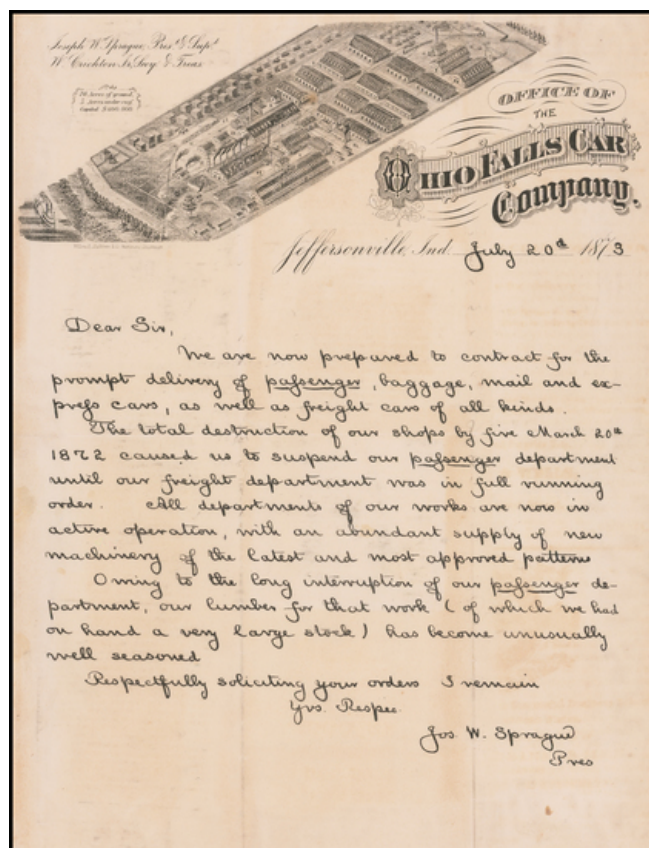 Joseph W. Sprague, Pres.t & Sup.t
W. Crichton Jr, Secy & Treas
OFFICE OF
THE
OHIO FALLS CAR
Company.
Jeffersonville, Ind. July 20th 1873
Dear Sir,
We are now prepared to contract for the
prompt delivery of paſsenger, baggage, mail and ex-
preſs cars, as well as freight cars of all kinds.
The total destruction of our shops by fire March 20th
1872 caused us to suspend our paſsenger department
until our freight department was in full running
order. All departments of our works are now in
active operation, with an abundant supply of new
machinery of the latest and most approved patterns
Owing to the long interruption of our paſsenger de-
partment, our lumber for that work (of which we had
on hand a very large stock) has become unusually
well seasoned
Respectfully soliciting your orders I remain
Yrs. Respec.
Jos. W. Sprague
Pres